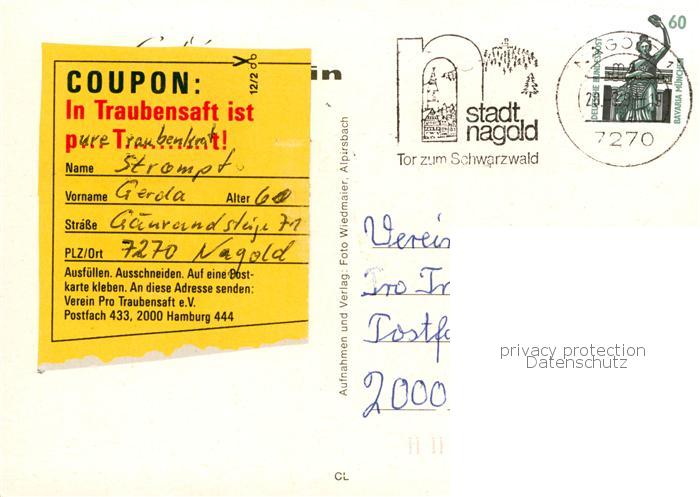 COUPON:
12/2
In Traubensaft ist
pure Traubenkraft!
Name Strompf
Vorname Gerda Alter 60
Straße Gäurandsteige 71
PLZ/Ort 7270 Nagold
Ausfüllen. Ausschneiden. Auf eine Post-
karte kleben. An diese Adresse senden:
Verein Pro Traubensaft e.V.
Postfach 433, 2000 Hamburg 444
in
Aufnahmen und Verlag: Foto Wiedmaier, Alpirsbach
CL
n
stadt
nagold
Tor zum Schwarzwald
7270
60
DEUTSCHE BUNDESPOST
BAVARIA MÜNCHEN
Verein
Pro Tr
Postfa
2000
privacy protection
Datenschutz